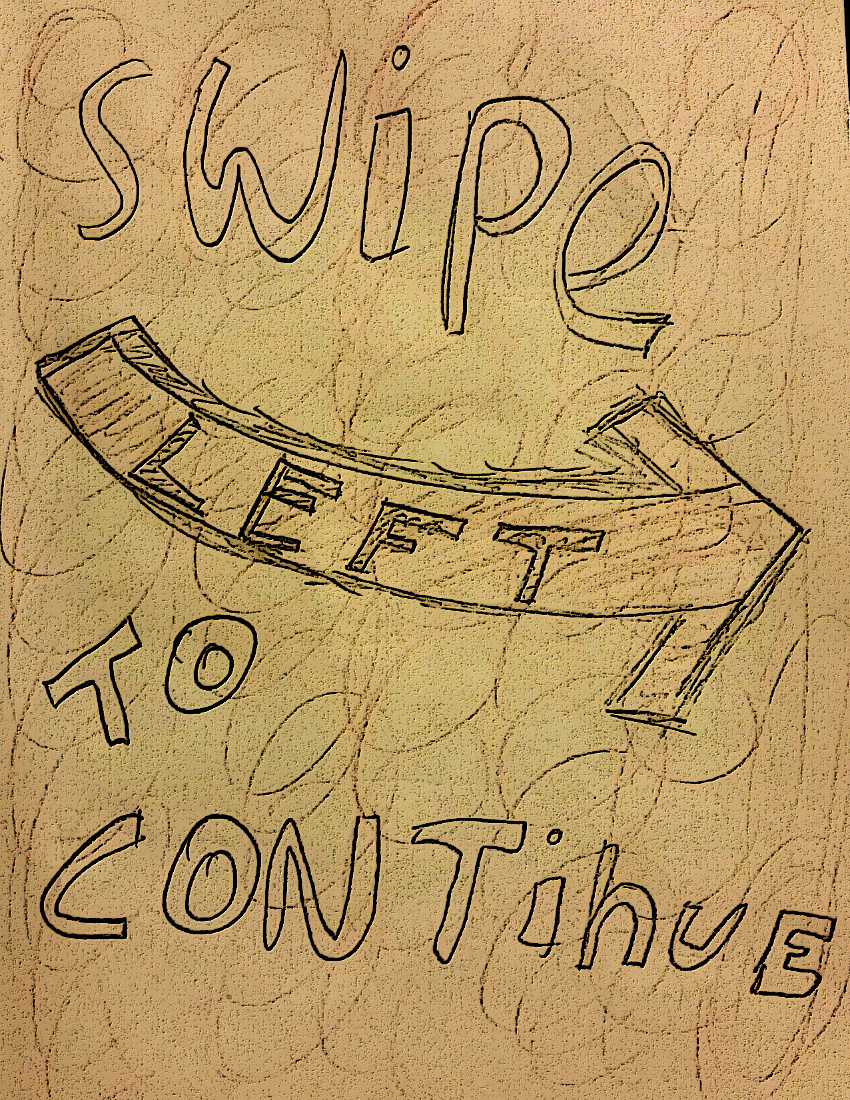 SWipe
LEFT
TO
CONTinuE